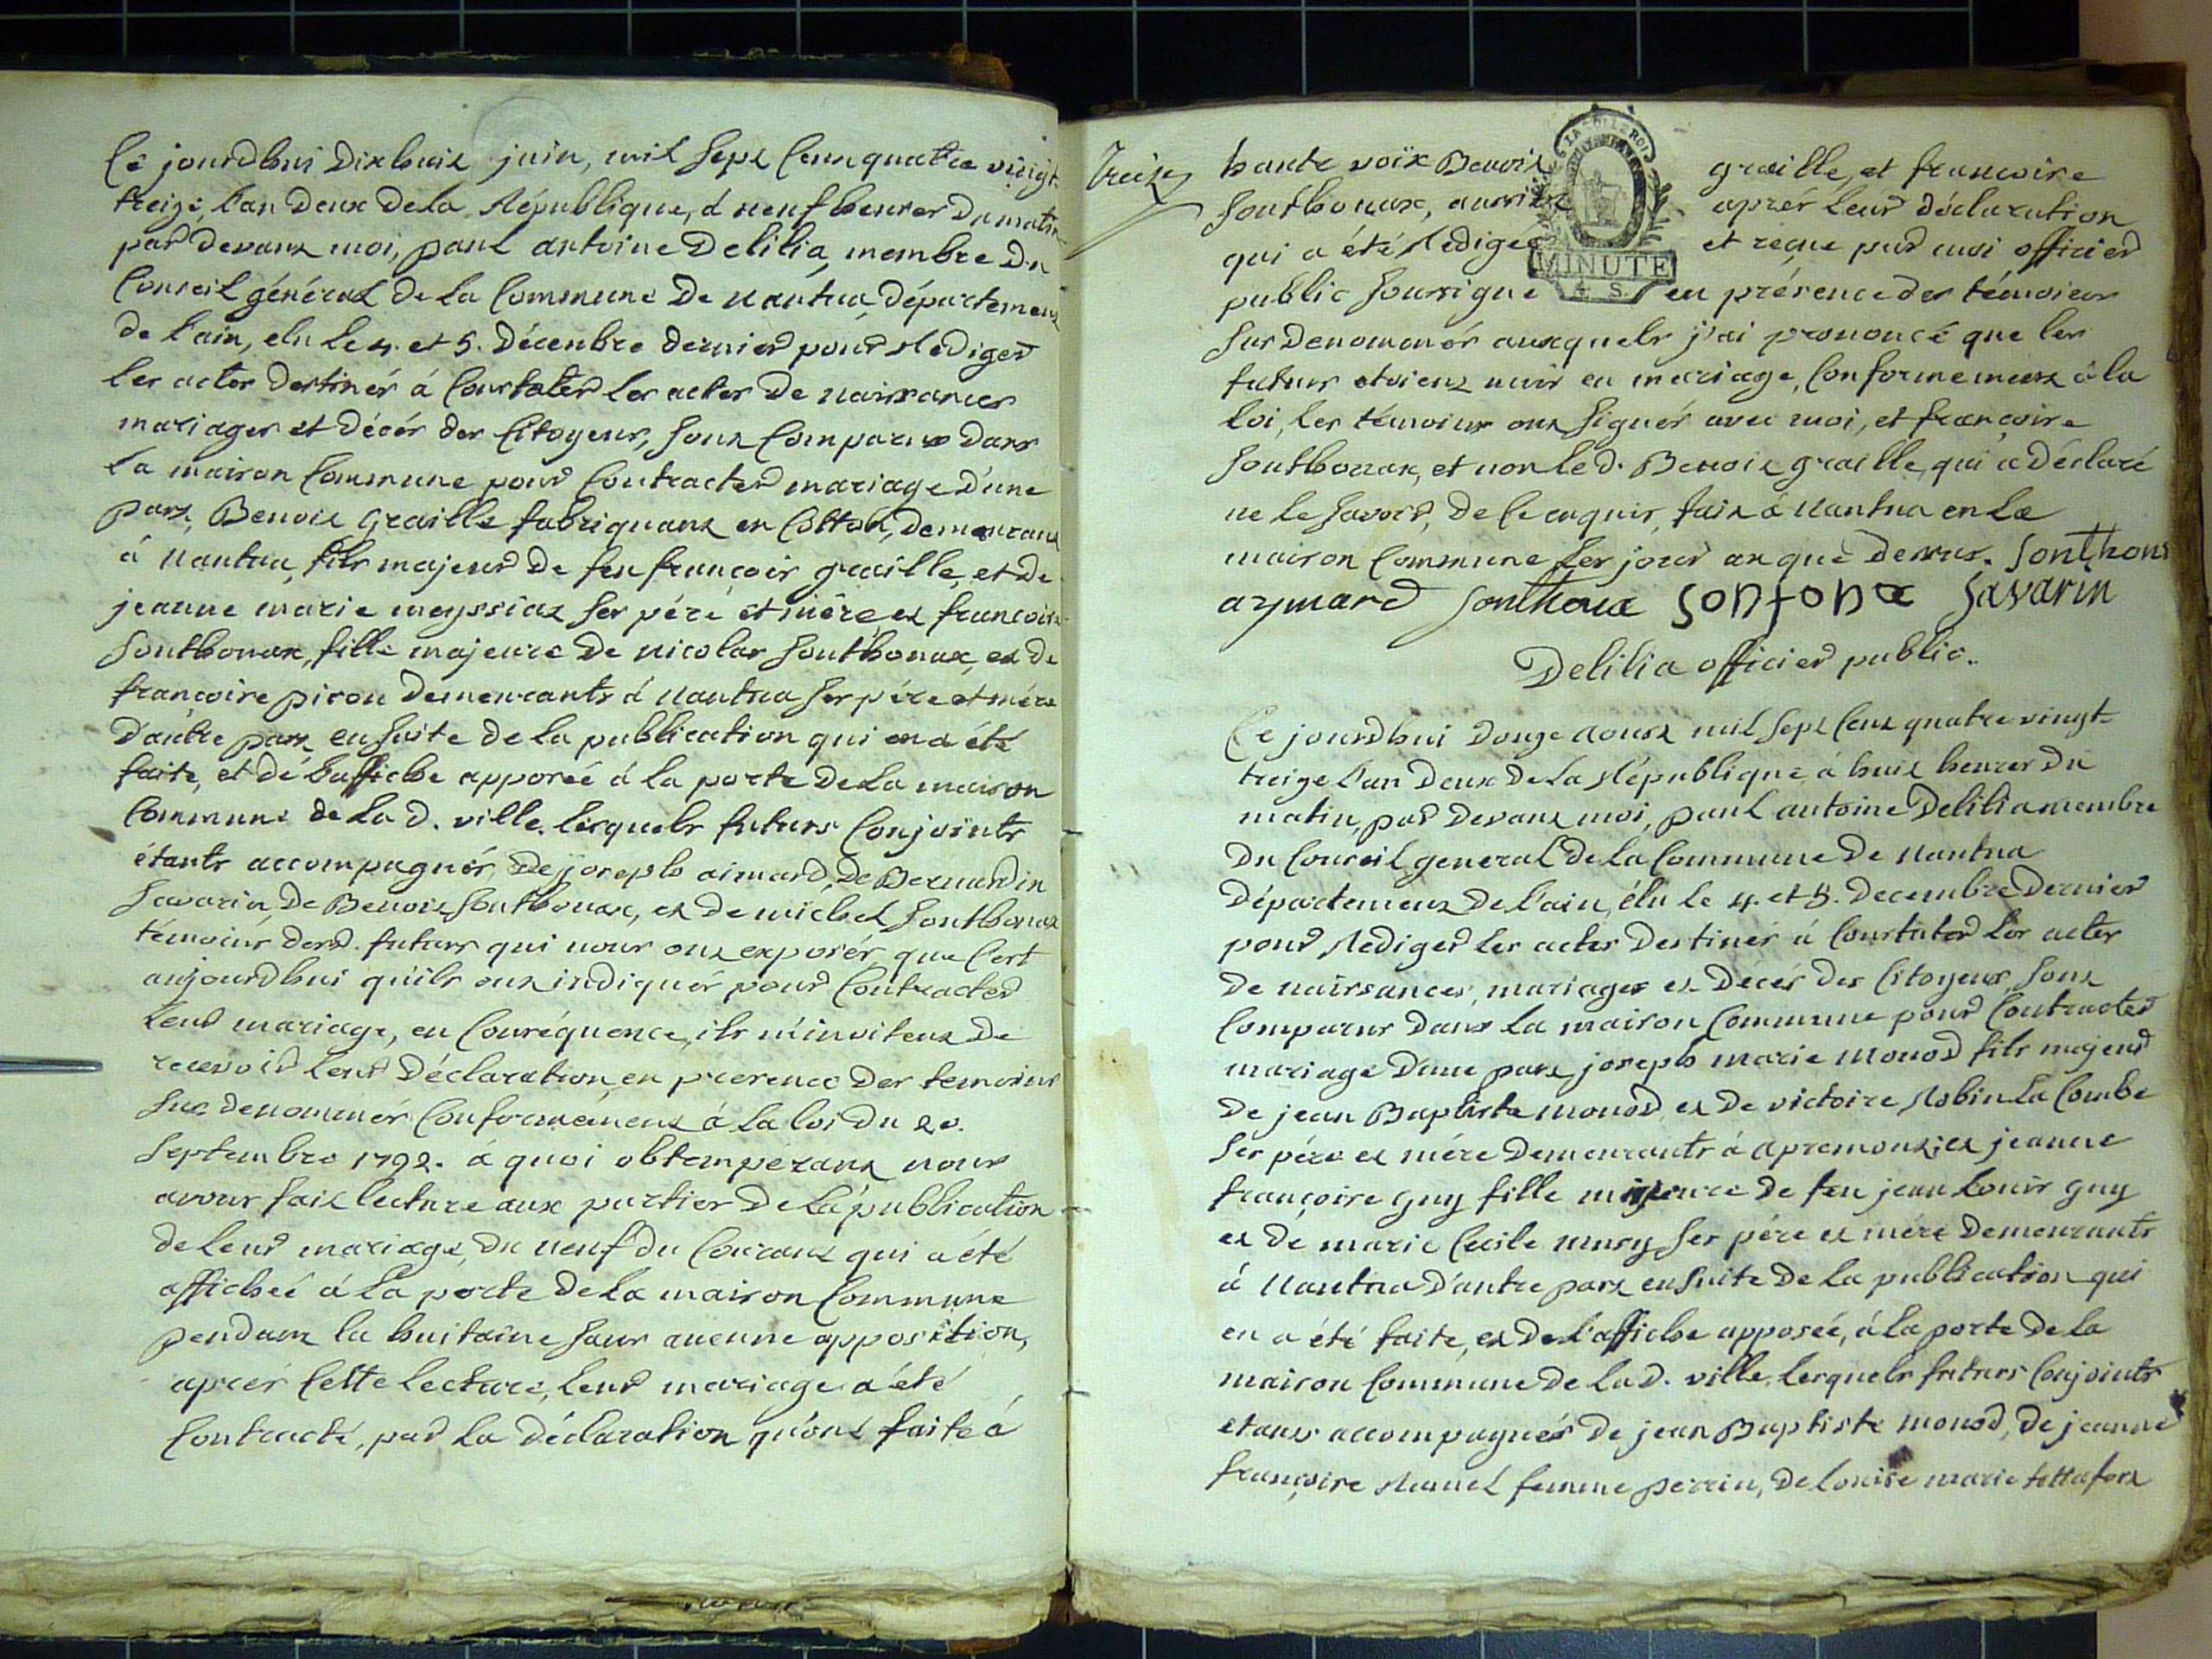 Ce jourdhui dixhuit juin, mil sept cent quatre vingt
treize, l'an deux de la République, à neuf heures du matin
par devant moi, paul antoine Delilia, membre du
Conseil général de la Commune de nantua, département
de l'ain, elu le 4. et 5. Décembre dernier pour rédiger
les actes destinés à Constater les actes de naissances
mariages et décès des Citoyens, sont Comparus dans
la maison Commune pour Contracter mariage d'une
part, Benoit graille fabriquant en Cotton, demeurant
à Nantua, fils majeur de feu françois graille, et de
jeanne marie meyssiat ses père et mère et françoise
Sonthonax, fille majeure de nicolas Sonthonax, et de
françoise piron demeurants à Nantua ses père et mère
d'autre part ensuite de la publication qui en a été
faite, et de l'affiche apposée à la porte de la maison
Commune de la d. ville. lesquels futurs Conjoints
étants accompagnés, de joseph aimard, de Bernardin
Savarin de Benoit Sonthonax, et de michel Sonthonax
témoins desd. futurs qui nous ont exposés que C'est
aujourdhui qu'ils ont indiqués pour Contracter
leur mariage, en Conséquence, ils m'invitent de
recevoir leur déclaration, en presence des temoins
sus denommés Conformément à la loi du 20.
Septembre 1792. à quoi obtempérant nous
avons fait lecture aux parties de la publication
de leur mariage, du neuf du Courant qui a été
affichée à la porte de la maison Commune
pendant la huitaine sans aucune opposition,
après Cette lecture, leur mariage a été
Contracté, par la déclaration qu'ont faite à
treize
haute voix Benoit graille, et françoise
Sonthonax, aussitôt après leur déclaration
qui a été redigée et reçue par moi officier
public soussigné en présence des témoins
sus denommés auxquels j'ai prononcé que les
futurs etoient unis en mariage, Conformement à la
loi, les témoins ont signés avec moi, et françoise
Sonthonax, et non le d. Benoit graille, qui a déclaré
ne le savoir, de ce enquis, fait à Nantua en la
maison Commune les jour an que dessus. Sonthonax
aymard Sonthonax Sonfonax Savarin
Delilia officier public.
LA LOI LE ROI
MINUTE
4. S.
Ce jourdhui douze aoust mil sept cent quatre vingt
treize l'an deux de la République à huit heures du
matin, par devant moi, paul antoine Delilia membre
du Conseil general de la Commune de nantua
Département de l'ain, élu le 4. et 5. Decembre dernier
pour rédiger les actes destinés à Constater les actes
de naissances, mariages et Décès des Citoyens, sont
Comparus dans la maison Commune pour Contracter
mariage d'une part joseph marie monod fils majeur
de jean Baptiste monod, et de victoire Robin la Combe
ses père et mère demeurants à apremont; et jeanne
françoise guy fille majeure de feu jean louis guy
et de marie Cecile mury ses père et mère demeurants
à Nantua d'autre part ensuite de la publication qui
en a été faite, et de l'affiche apposée, à la porte de la
maison Commune de la d. ville. lesquels futurs Conjoints
etans accompagnés de jean Baptiste monod, de jeanne
françoise femme perrin, de louise marie tettafort